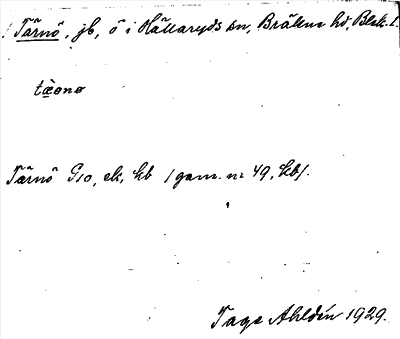 Tärnö, jb, ö i Hällaryds sn, Bräkne hd, Blek. l.
Tärnö G10, ek, kb /gam. nr 49, kb/.
Tage Ahldén 1929.